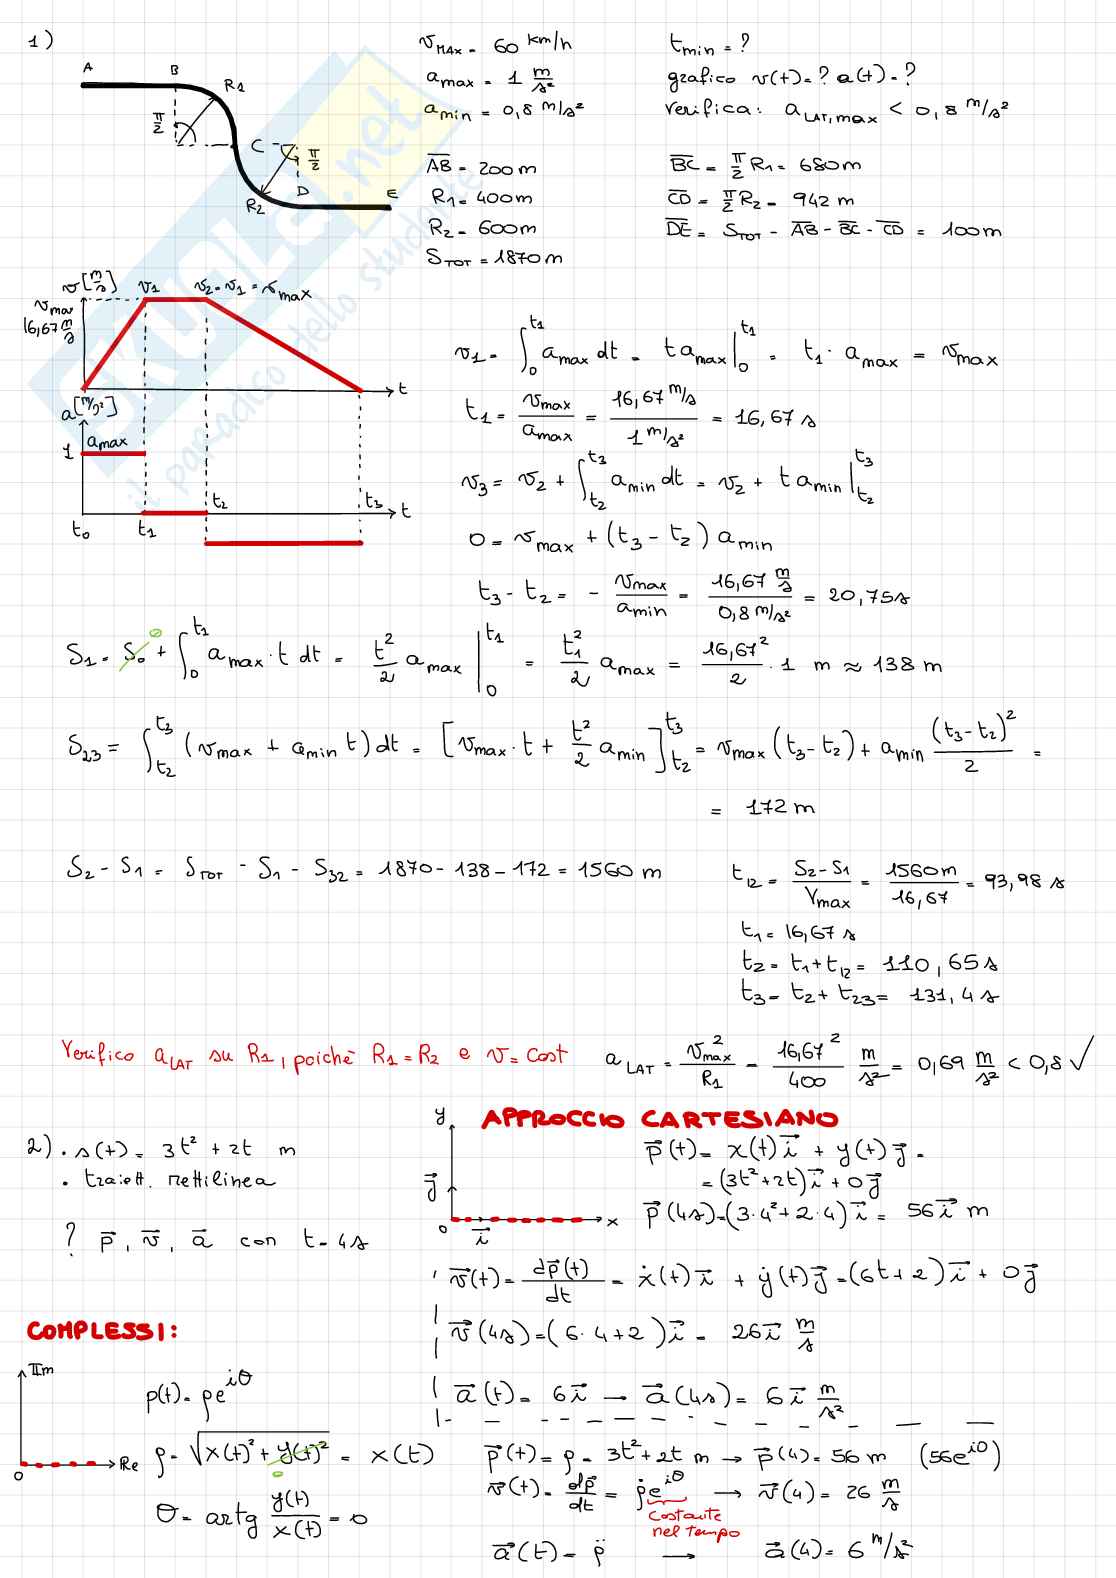 1)
A B R1 π/2 C π/2 R2 D E
v_MAX = 60 km/h
a_max = 1 m/s²
a_min = 0,8 m/s²
t_min = ?
grafico v(t) = ? a(t) = ?
verifica: a_LAT,max < 0,8 m/s²
AB = 200 m
R1 = 400 m
R2 = 600 m
S_TOT = 1870 m
BC = π/2 R1 = 680 m
CD = π/2 R2 = 942 m
DE = S_TOT - AB - BC - CD = 100 m
v [m/s] v1 v2 = v1 = v_max
v_max
16,67 m/s
t
a [m/s²]
1 a_max
t0 t1 t2 t3 t
v1 = ∫_0^t1 a_max dt = t a_max |_0^t1 = t1 · a_max = v_max
t1 = v_max / a_max = 16,67 m/s / 1 m/s² = 16,67 s
v3 = v2 + ∫_t2^t3 a_min dt = v2 + t a_min |_t2^t3
0 = v_max + (t3 - t2) a_min
t3 - t2 = - v_max / a_min = 16,67 m/s / 0,8 m/s² = 20,75 s
S1 = S0 0 + ∫_0^t1 a_max · t dt = t²/2 a_max |_0^t1 = t1²/2 a_max = 16,67²/2 · 1 m ≈ 138 m
S23 = ∫_t2^t3 (v_max + a_min t) dt = [v_max · t + t²/2 a_min]_t2^t3 = v_max (t3 - t2) + a_min (t3 - t2)²/2 =
= 172 m
S2 - S1 = S_TOT - S1 - S32 = 1870 - 138 - 172 = 1560 m
t12 = S2 - S1 / V_max = 1560 m / 16,67 = 93,98 s
t1 = 16,67 s
t2 = t1 + t12 = 110,65 s
t3 = t2 + t23 = 131,4 s
Verifico a_LAT su R1, poichè R1 = R2 e v = cost
a_LAT = v²_max / R1 = 16,67² / 400 m/s² = 0,69 m/s² < 0,8 ✓
APPROCCIO CARTESIANO
2) · s(t) = 3t² + 2t m
· traiett. rettilinea
? p⃗, v⃗, a⃗ con t = 4s
y j⃗ 0 i⃗ x
p⃗(t) = x(t) i⃗ + y(t) j⃗ =
= (3t² + 2t) i⃗ + 0 j⃗
p⃗(4s) = (3·4² + 2·4) i⃗ = 56 i⃗ m
v⃗(t) = dp⃗(t)/dt = ẋ(t) i⃗ + ẏ(t) j⃗ = (6t + 2) i⃗ + 0 j⃗
v⃗(4s) = (6·4 + 2) i⃗ = 26 i⃗ m/s
a⃗(t) = 6 i⃗ → a⃗(4s) = 6 i⃗ m/s²
COMPLESSI:
Im 0 Re
p(t) = ρe^iθ
ρ = √(x(t)² + y(t)²) 0 = x(t)
θ = artg y(t)/x(t) = 0
p⃗(t) = ρ = 3t² + 2t m → p⃗(4) = 56 m (56e^i0)
v⃗(t) = dp⃗/dt = ρ̇e^iθ → v⃗(4) = 26 m/s
costante
nel tempo
a⃗(t) = ρ̈ → a⃗(4) = 6 m/s²
SKUOLA.net
il paradiso dello studente